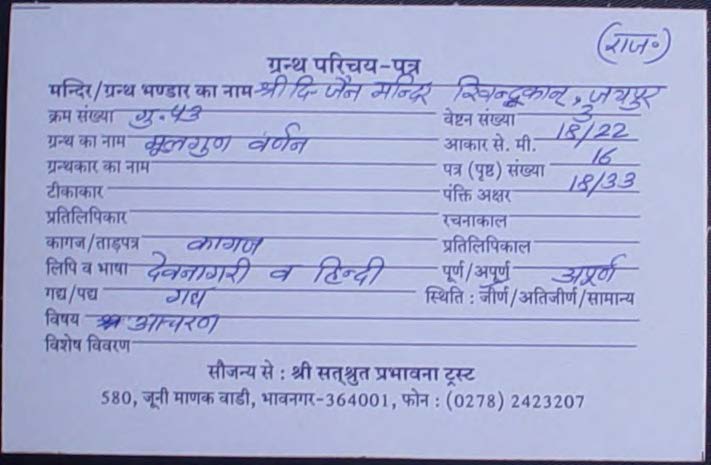 (राज॰)
ग्रन्थ परिचय-पत्र
मन्दिर/ग्रन्थ भण्डार का नाम श्री दि॰ जैन मन्दिर खिन्दूकान, जयपुर
क्रम संख्या गु. ५३ वेष्टन संख्या
ग्रन्थ का नाम मूलगुण वर्णन आकार से. मी. 18/22
ग्रन्थकार का नाम पत्र (पृष्ठ) संख्या 16
टीकाकार पंक्ति अक्षर 18/33
प्रतिलिपिकार रचनाकाल
कागज/ताड़पत्र कागज प्रतिलिपिकाल
लिपि व भाषा देवनागरी व हिन्दी पूर्ण/अपूर्ण अपूर्ण
गद्य/पद्य गद्य स्थिति : जीर्ण/अतिजीर्ण/सामान्य
विषय आचरण
विशेष विवरण
सौजन्य से : श्री सत्श्रुत प्रभावना ट्रस्ट
580, जूनी माणक वाडी, भावनगर-364001, फोन : (0278) 2423207